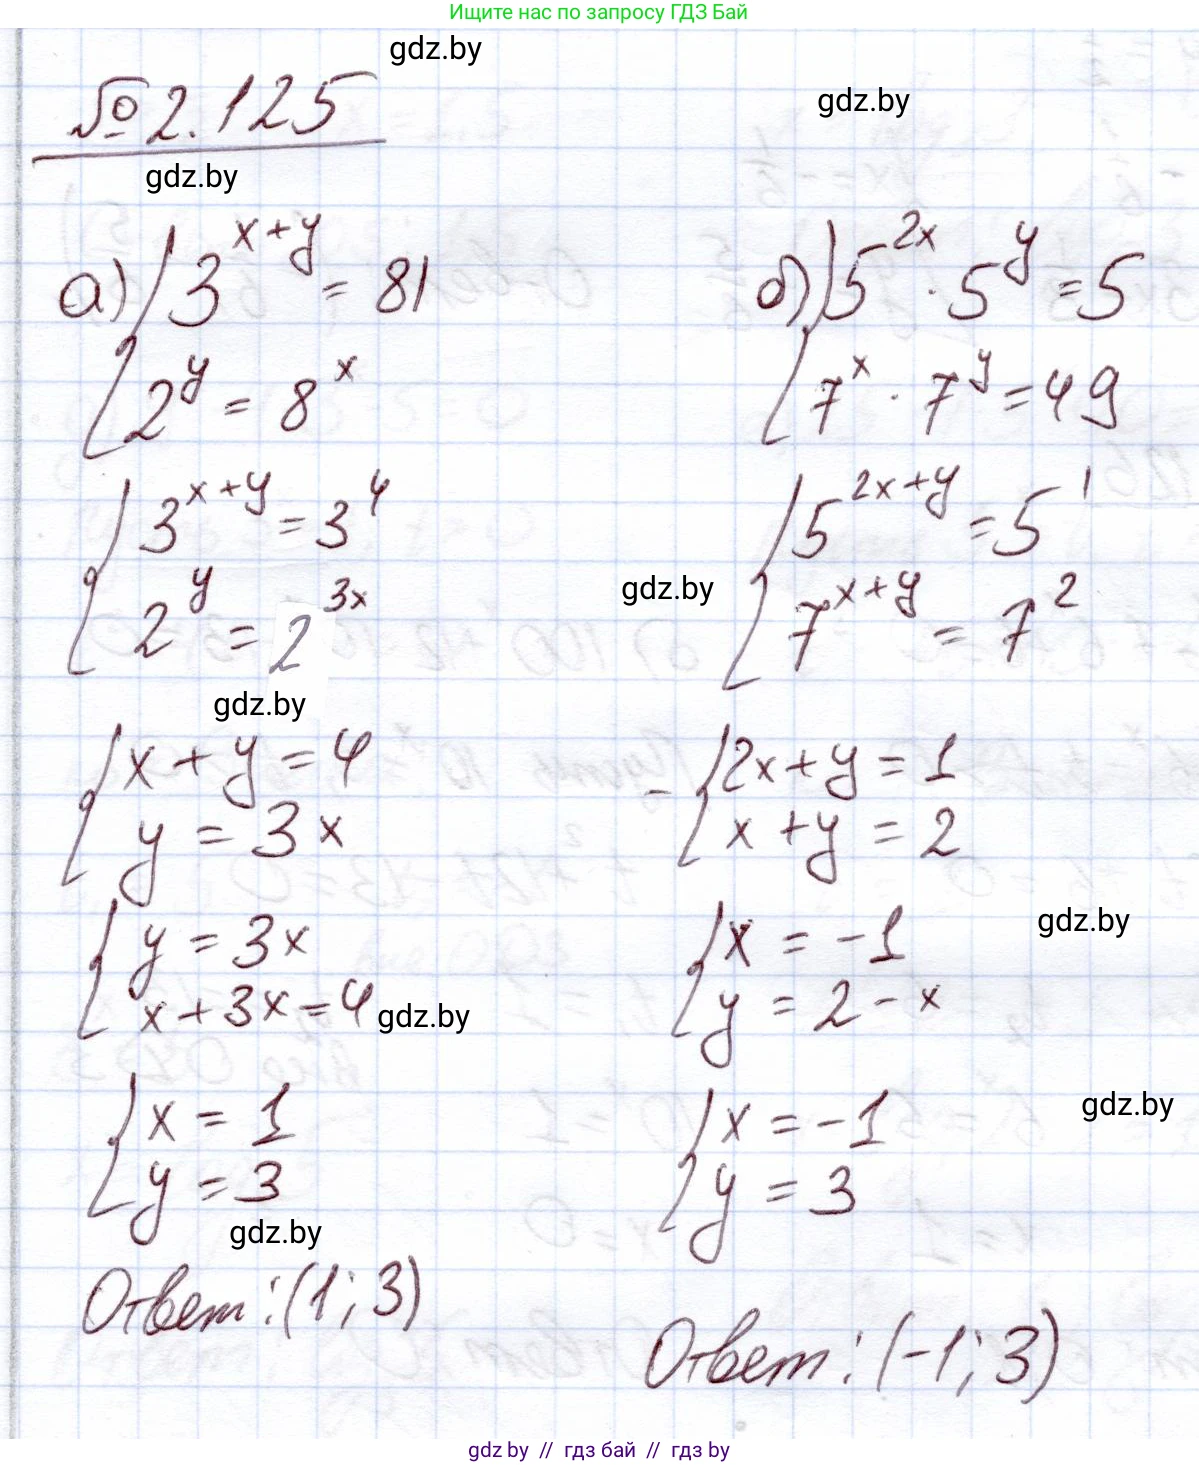 Ищите нас по запросу ГДЗ Бай
gdz.by
gdz.by
№ 2.125
gdz.by
а) { 3^{x+y} = 81
2^y = 8^x
{ 3^{x+y} = 3^4
2^y = 2^{3x}
gdz.by
{ x + y = 4
y = 3x
{ y = 3x
x + 3x = 4
gdz.by
{ x = 1
y = 3
gdz.by
Ответ: (1; 3)
б) { 5^{2x} · 5^y = 5
7^x · 7^y = 49
{ 5^{2x+y} = 5^1
gdz.by
7^{x+y} = 7^2
- { 2x + y = 1
x + y = 2
gdz.by
{ x = -1
y = 2 - x
gdz.by
{ x = -1
y = 3
Ответ: (-1; 3)
gdz.by // гдз бай // гдз by